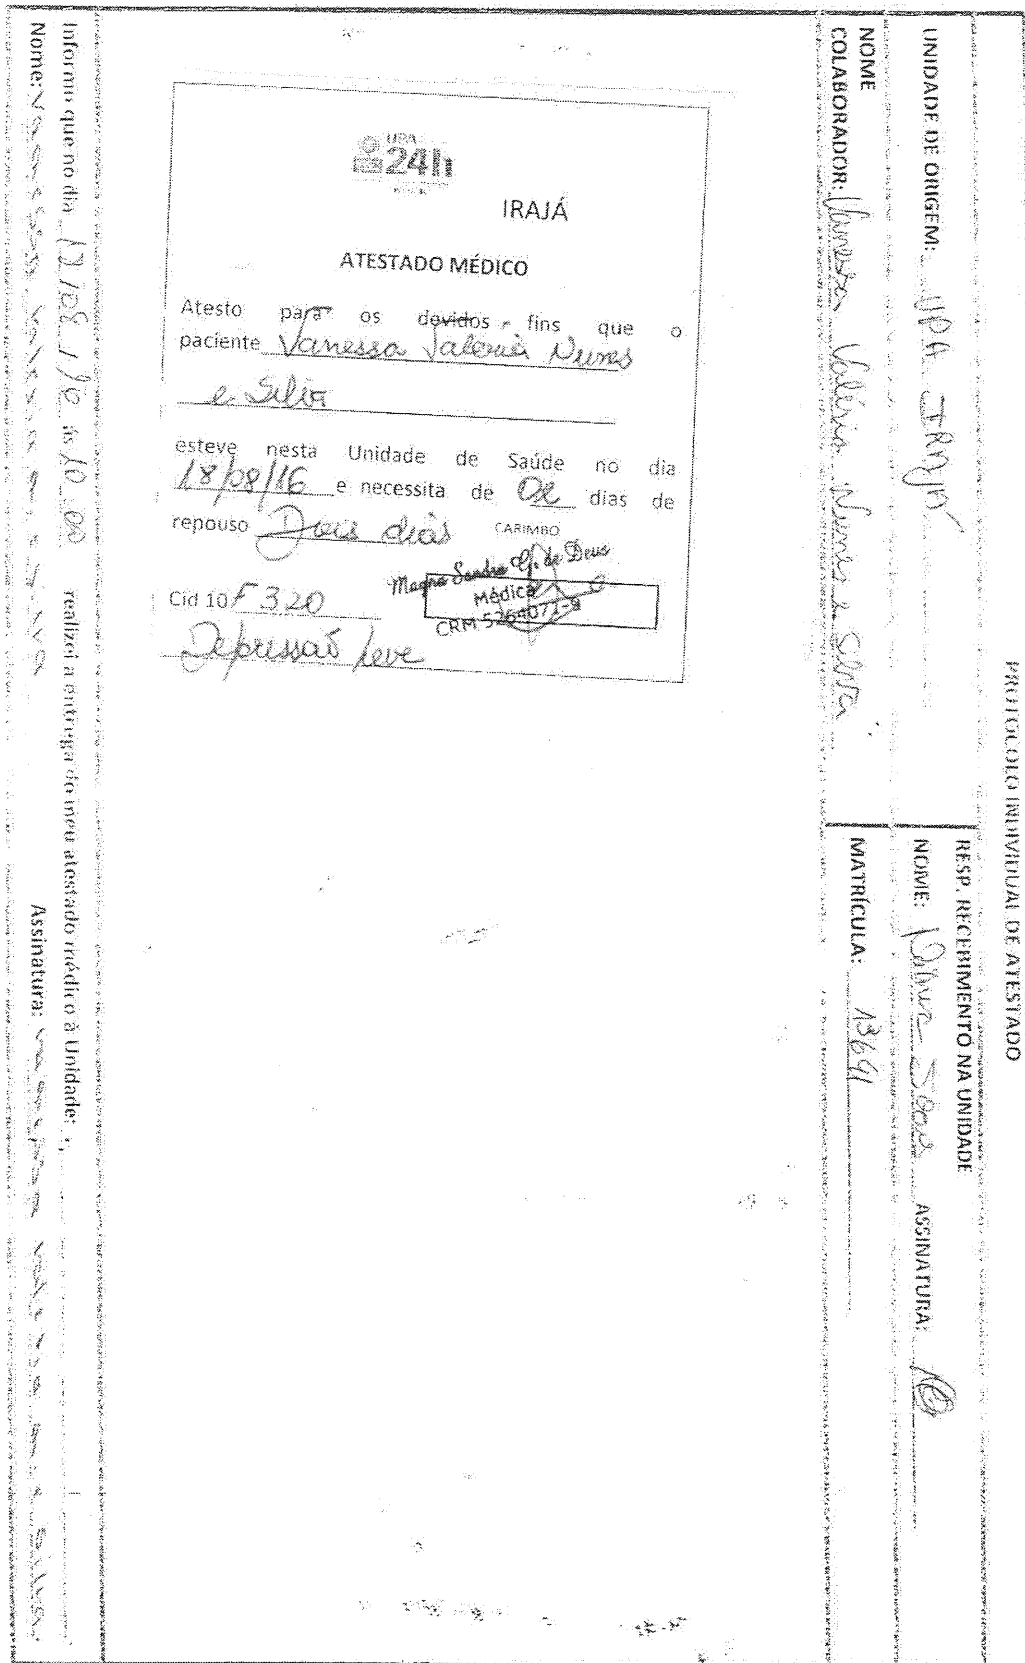 PROTOCOLO INDIVIDUAL DE ATESTADO
UNIDADE DE ORIGEM: UPA IRAJÁ
RESP. RECEBIMENTO NA UNIDADE
NOME: ASSINATURA:
NOME
COLABORADOR: Vanessa Valéria Nunes e Silva
MATRÍCULA: 13641
UPA
24h
IRAJÁ
ATESTADO MÉDICO
Atesto para os devidos fins que o
paciente Vanessa Valeria Nunes
e Silva
esteve nesta Unidade de Saúde no dia
18/08/16 e necessita de 02 dias de
repouso Dois dias
CARIMBO
Magna Sandra G. de Deus
Médica
CRM 5264071-9
Cid 10 F 320
Depressaõ leve
Informo que no dia às realizei a entrega do meu atestado médico à Unidade:
Nome: Vanessa Valeria Assinatura: Vanessa Valeria Silva